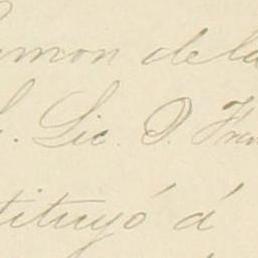 amon de la
S. Lic. D. Fran
tituyó á